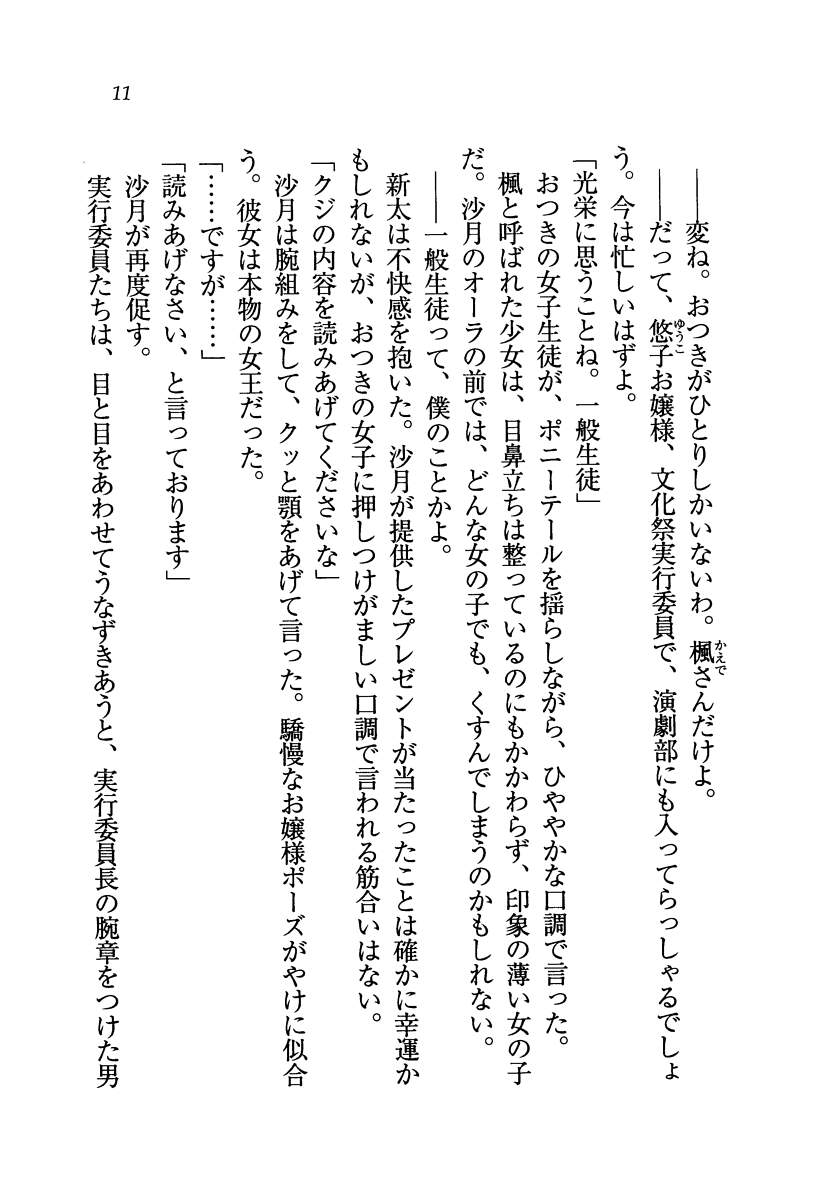 11
――変ね。おつきがひとりしかいないわ。楓さんだけよ。
かえで
――だって、悠子お嬢様、文化祭実行委員で、演劇部にも入ってらっしゃるでしょ
ゆうこ
う。今は忙しいはずよ。
「光栄に思うことね。一般生徒」
おつきの女子生徒が、ポニーテールを揺らしながら、ひややかな口調で言った。
楓と呼ばれた少女は、目鼻立ちは整っているのにもかかわらず、印象の薄い女の子
だ。沙月のオーラの前では、どんな女の子でも、くすんでしまうのかもしれない。
――一般生徒って、僕のことかよ。
新太は不快感を抱いた。沙月が提供したプレゼントが当たったことは確かに幸運か
もしれないが、おつきの女子に押しつけがましい口調で言われる筋合いはない。
「クジの内容を読みあげてくださいな」
沙月は腕組みをして、クッと顎をあげて言った。驕慢なお嬢様ポーズがやけに似合
う。彼女は本物の女王だった。
「……ですが……」
「読みあげなさい、と言っております」
沙月が再度促す。
実行委員たちは、目と目をあわせてうなずきあうと、実行委員長の腕章をつけた男